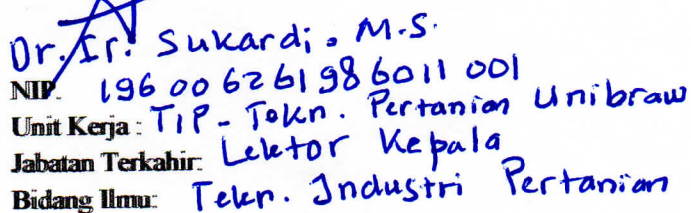 Dr. Ir. Sukardi, M.S.
NIP. 19600626198601 1 001
Unit Kerja : TIP - Tekn. Pertanian Unibraw
Jabatan Terkahir: Lektor Kepala
Bidang Ilmu: Tekn. Industri Pertanian